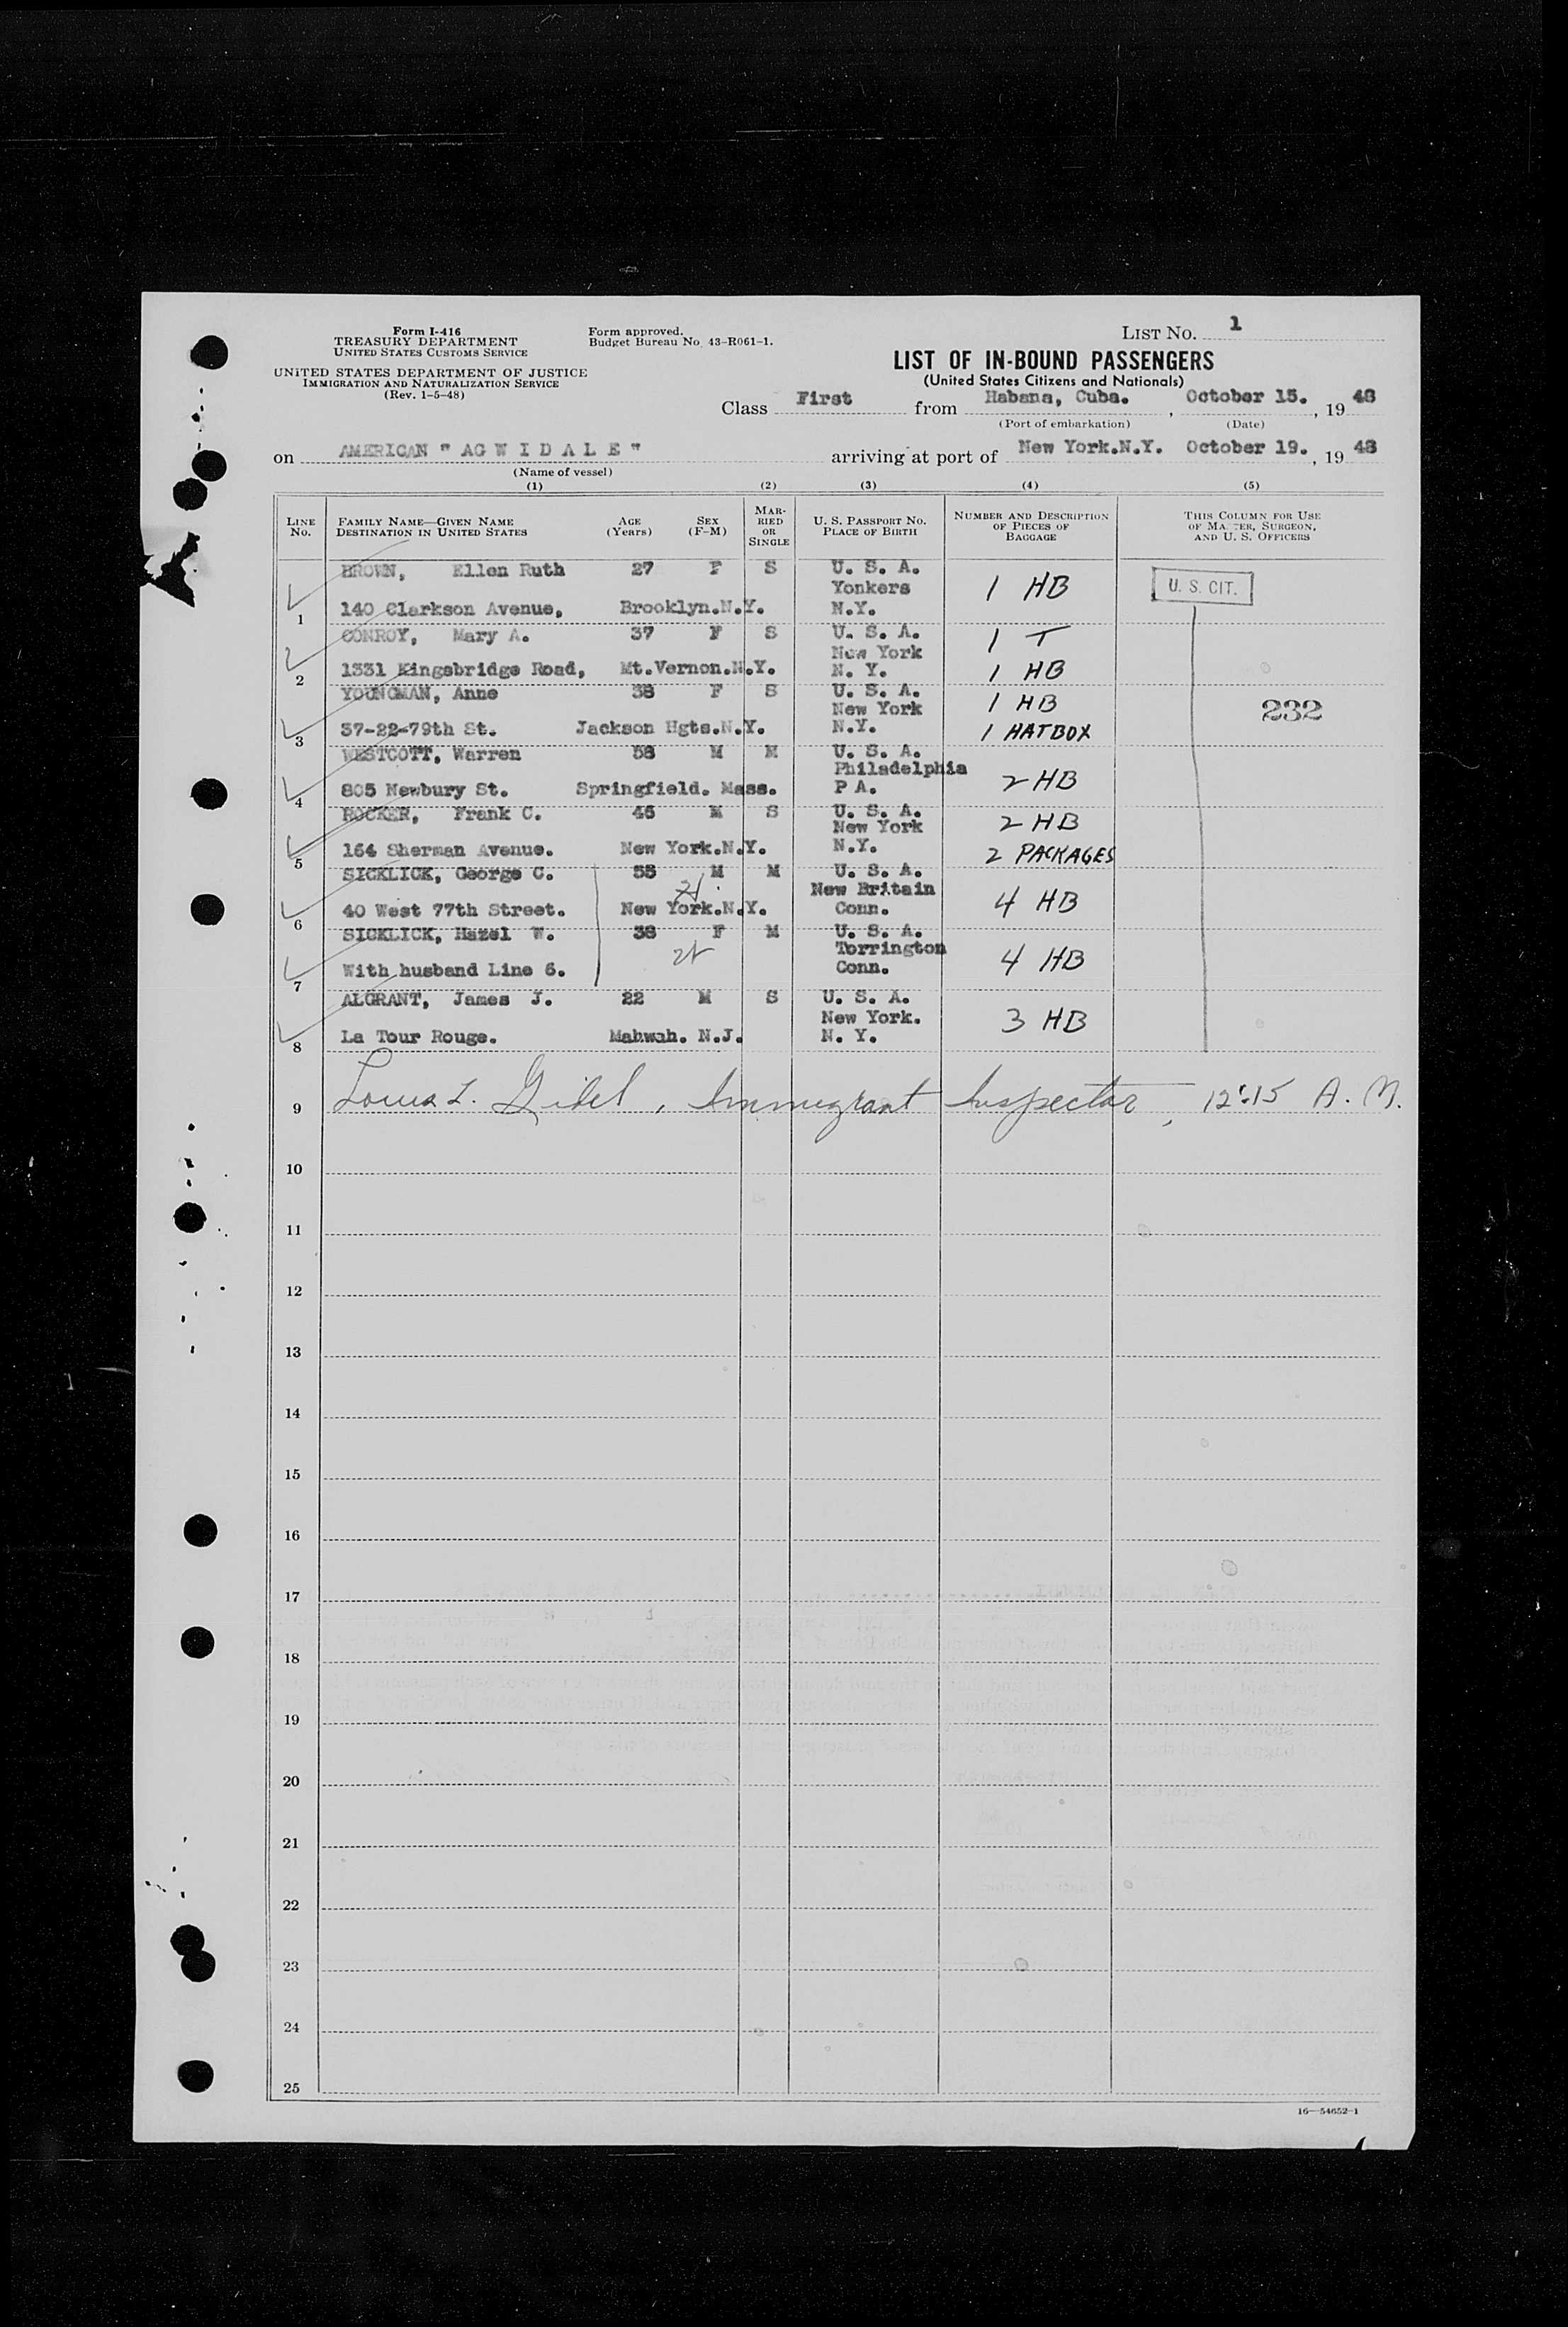 Form I-416
TREASURY DEPARTMENT
UNITED STATES CUSTOMS SERVICE
UNITED STATES DEPARTMENT OF JUSTICE
IMMIGRATION AND NATURALIZATION SERVICE
(Rev. 1-5-48)
Form approved.
Budget Bureau No. 43-R061-1.
LIST NO. 1
LIST OF IN-BOUND PASSENGERS
(United States Citizens and Nationals)
Class First from Habana, Cuba. , October 15. , 19 48
(Port of embarkation) (Date)
on AMERICAN " AG W I D A L E " arriving at port of New York.N.Y. October 19. , 19 48
(Name of vessel)
(1) (2) (3) (4) (5)
LINE NO. FAMILY NAME—GIVEN NAME DESTINATION IN UNITED STATES AGE (Years) SEX (F-M) MARRIED OR SINGLE U. S. PASSPORT NO. PLACE OF BIRTH NUMBER AND DESCRIPTION OF PIECES OF BAGGAGE THIS COLUMN FOR USE OF MASTER, SURGEON, AND U. S. OFFICERS
BROWN, Ellen Ruth 27 F S U. S. A.
Yonkers 1 HB U. S. CIT.
1 140 Clarkson Avenue, Brooklyn.N.Y. N.Y.
CONROY, Mary A. 37 F S U. S. A. 1 T
New York
2 1331 Kingsbridge Road, Mt.Vernon.N.Y. N. Y. 1 HB
YOUNGMAN, Anne 38 F S U. S. A.
New York 1 HB 232
3 37-22-79th St. Jackson Hgts.N.Y. N.Y. 1 HATBOX
WESTCOTT, Warren 58 M M U. S. A.
Philadelphia 2 HB
4 805 Newbury St. Springfield. Mass. PA.
ROCKER, Frank C. 46 M S U. S. A.
New York 2 HB
5 164 Sherman Avenue. New York.N.Y. N.Y. 2 PACKAGES
SICKLICK, George C. 55 M M U. S. A.
New Britain 4 HB
6 40 West 77th Street. New York.N.Y. Conn.
SICKLICK, Hazel W. 38 F M U. S. A.
Torrington 4 HB
7 With husband Line 6. Conn.
ALGRANT, James J. 22 M S U. S. A.
New York. 3 HB
8 La Tour Rouge. Mahwah. N.J. N. Y.
9 Louis L. Gidel, Immigrant Inspector, 12:15 A. M.
10
11
12
13
14
15
16
17
18
19
20
21
22
23
24
25
16—54652-1